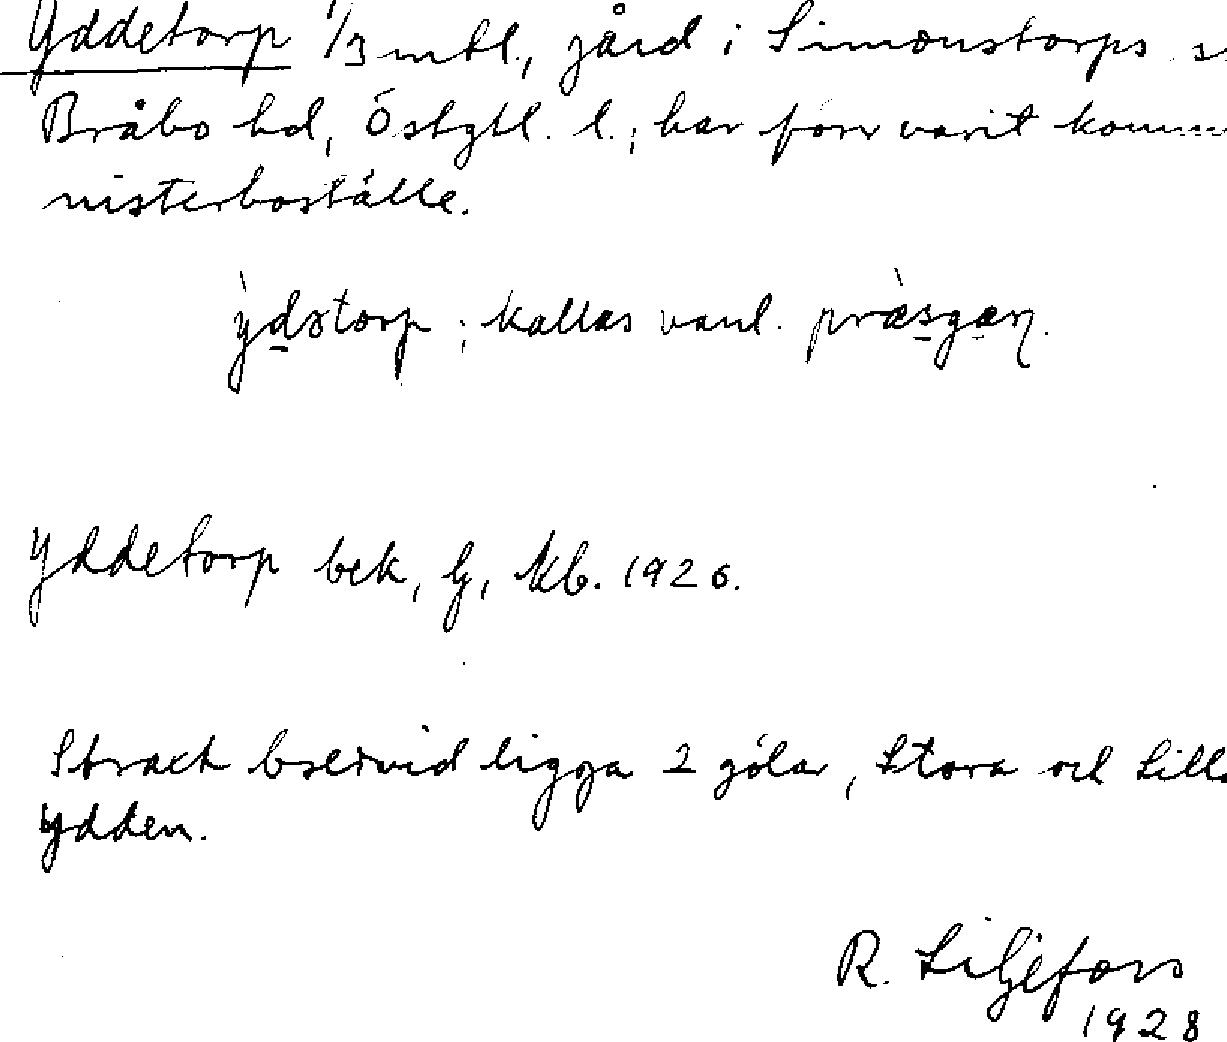 Yddetorp 1/3 mtl., gård i Simonstorps s
Bråbo hd, Östgtl. l.; har förr varit komm
nisterboställe.
ỳdətorp ; kallas vanl. pràsgaɳ.
Yddetorp bek, G, Kb. 1926.
Strax bredvid ligga 2 gölar, Stora och Lilla
Ydden.
R. Liljefors
1928